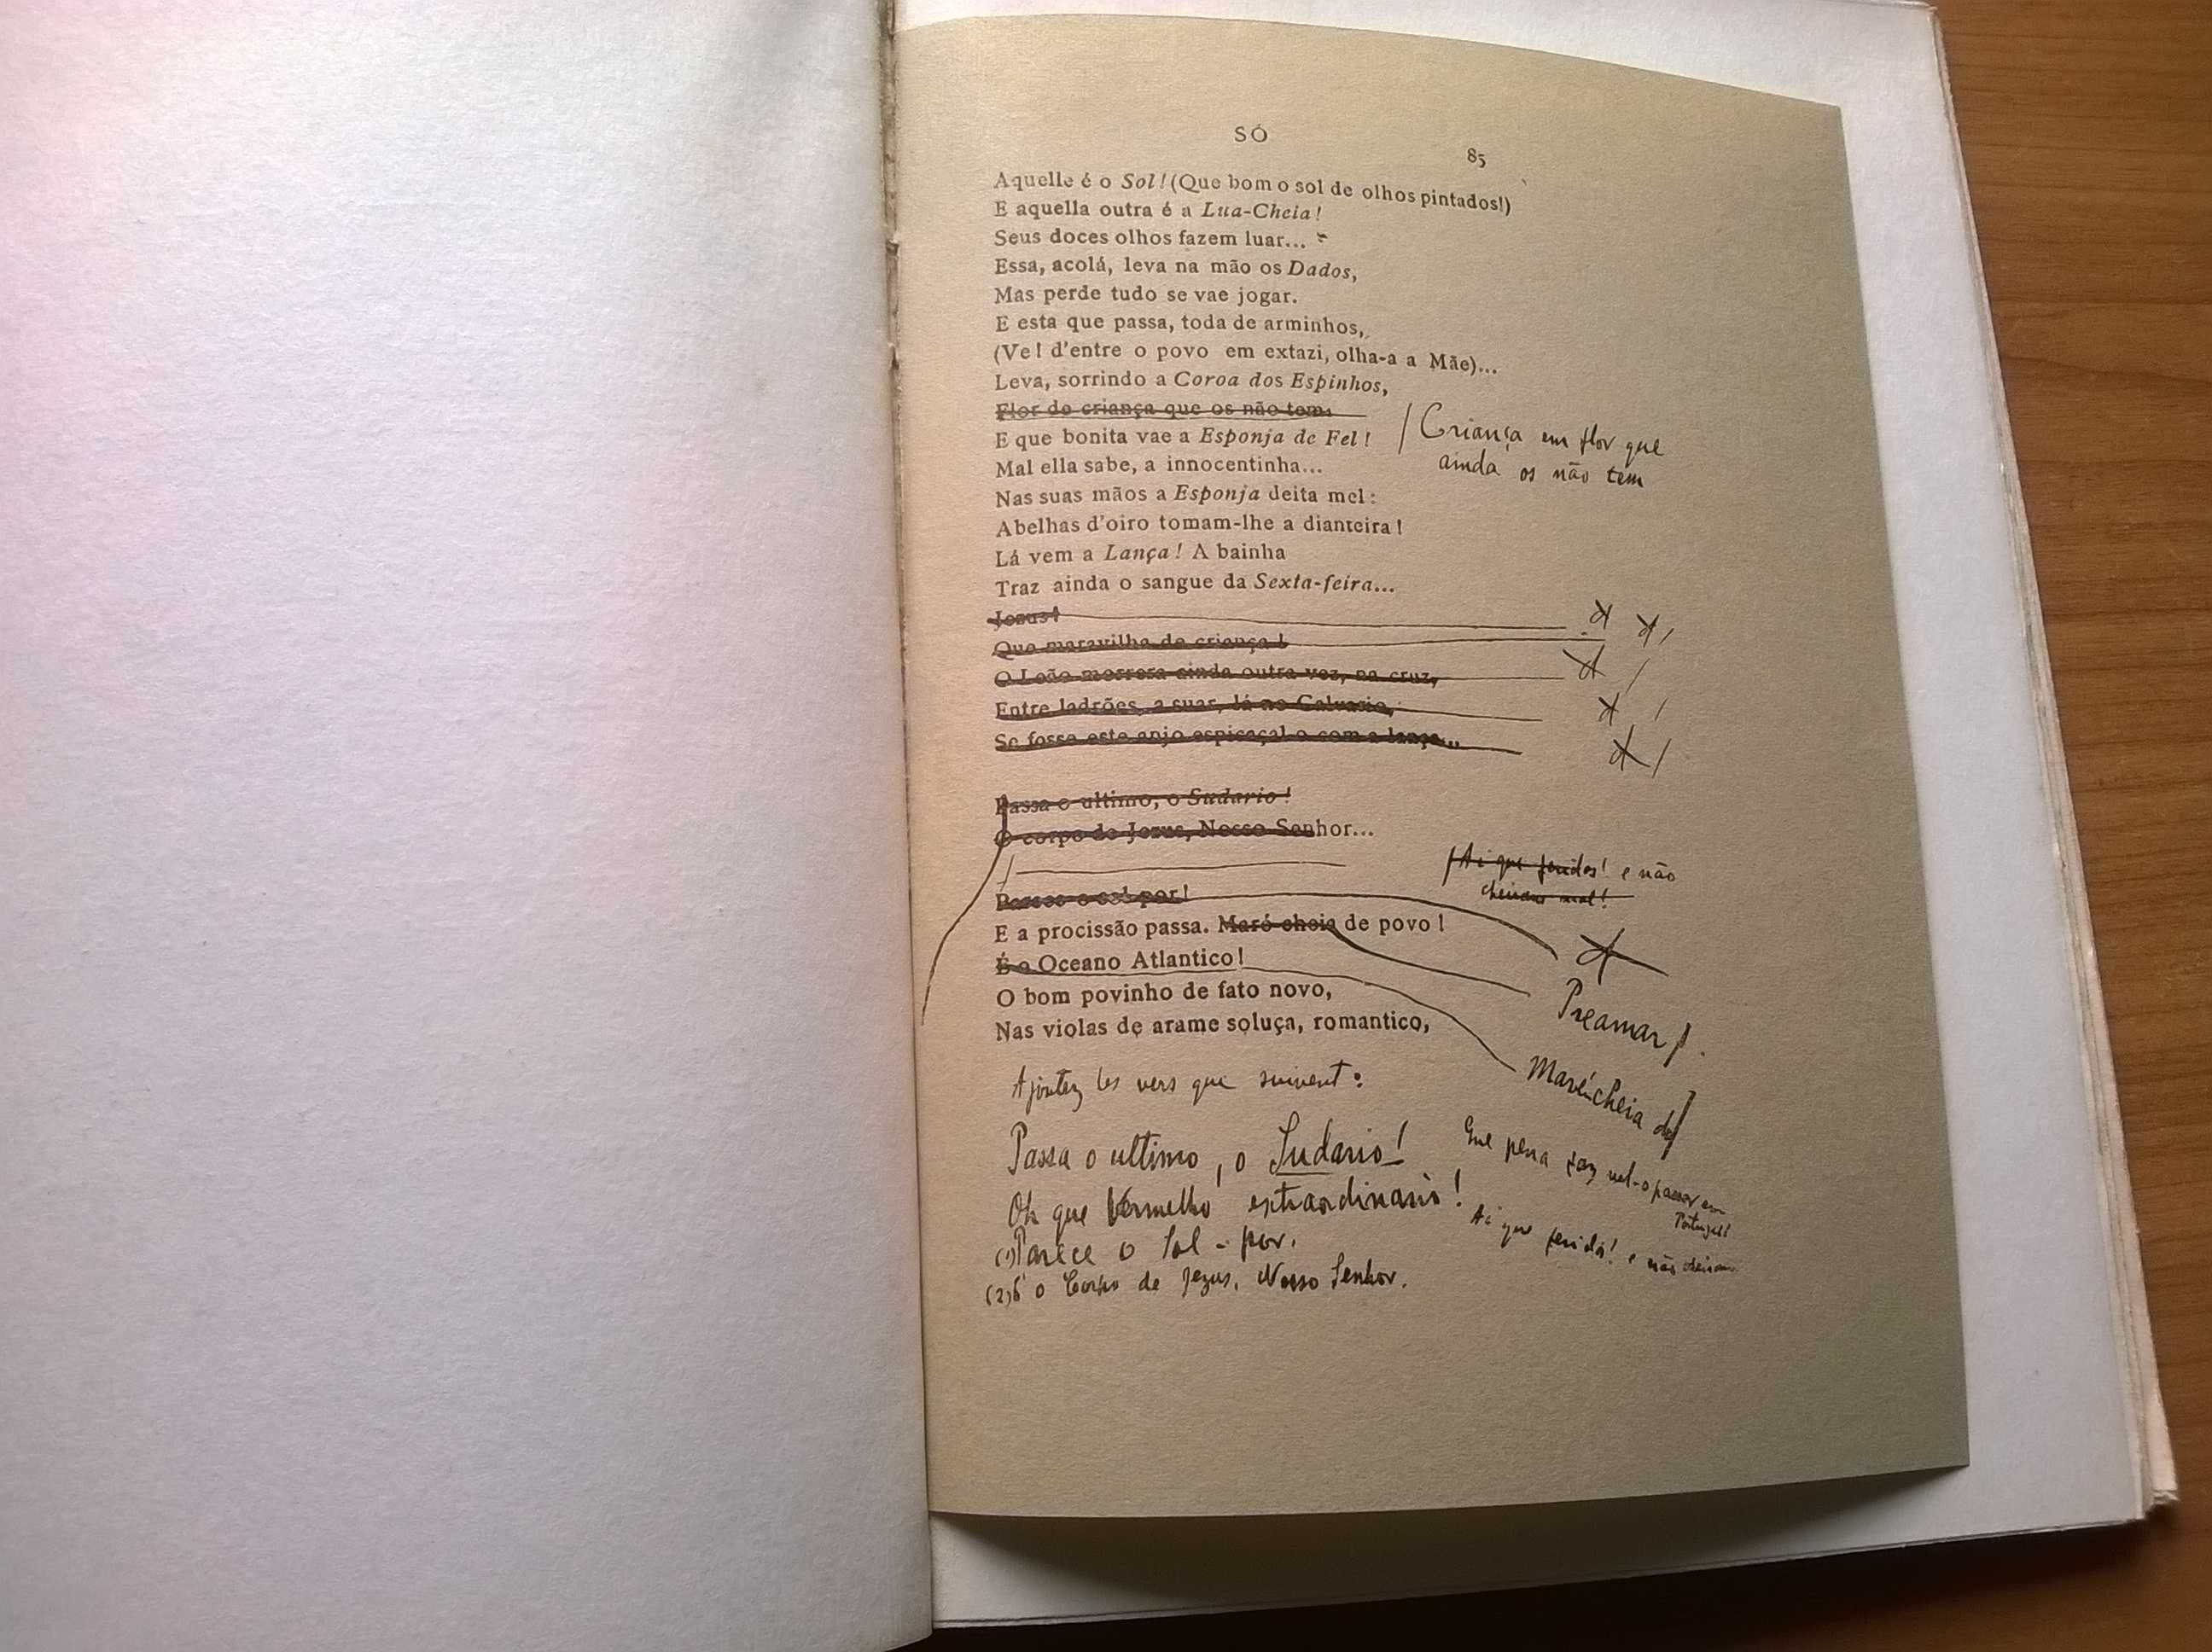 SÓ
85
Aquelle é o Sol! (Que bom o sol de olhos pintados!)
E aquella outra é a Lua-Cheia!
Seus doces olhos fazem luar...
Essa, acolá, leva na mão os Dados,
Mas perde tudo se vae jogar.
E esta que passa, toda de arminhos,
(Ve! d'entre o povo em extazi, olha-a a Mãe)...
Leva, sorrindo a Coroa dos Espinhos,
Flor de criança que os não tem.
E que bonita vae a Esponja de Fel!
Criança em flor que
ainda os não tem
Mal ella sabe, a innocentinha...
Nas suas mãos a Esponja deita mel:
Abelhas d'oiro tomam-lhe a dianteira!
Lá vem a Lança! A bainha
Traz ainda o sangue da Sexta-feira...
Jezus!
Que maravilha de criança!
O Leão morrera ainda outra vez, na cruz,
Entre ladrões, a suar, lá no Calvario,
Se fosse este anjo espicaçal-o com a lança...
Passa o ultimo, o Sudario!
O corpo de Jezus, Nosso Senhor...
Ai que feridas! e não
cheiram mal!
Parece o sol-por!
E a procissão passa. Maré-cheia de povo!
É o Oceano Atlantico!
O bom povinho de fato novo,
Nas violas de arame soluça, romantico,
Preamar
Maré-cheia de
Ajoutez les vers que suivent:
Passa o ultimo, o Sudario!
Oh que Vermelho extraordinario!
(1) Parece o Sol-por.
(2) É o Corpo de Jezus, Nosso Senhor.
Que pena faz vel-o passar em
Portugal!
Ai que feridas! e não cheiram